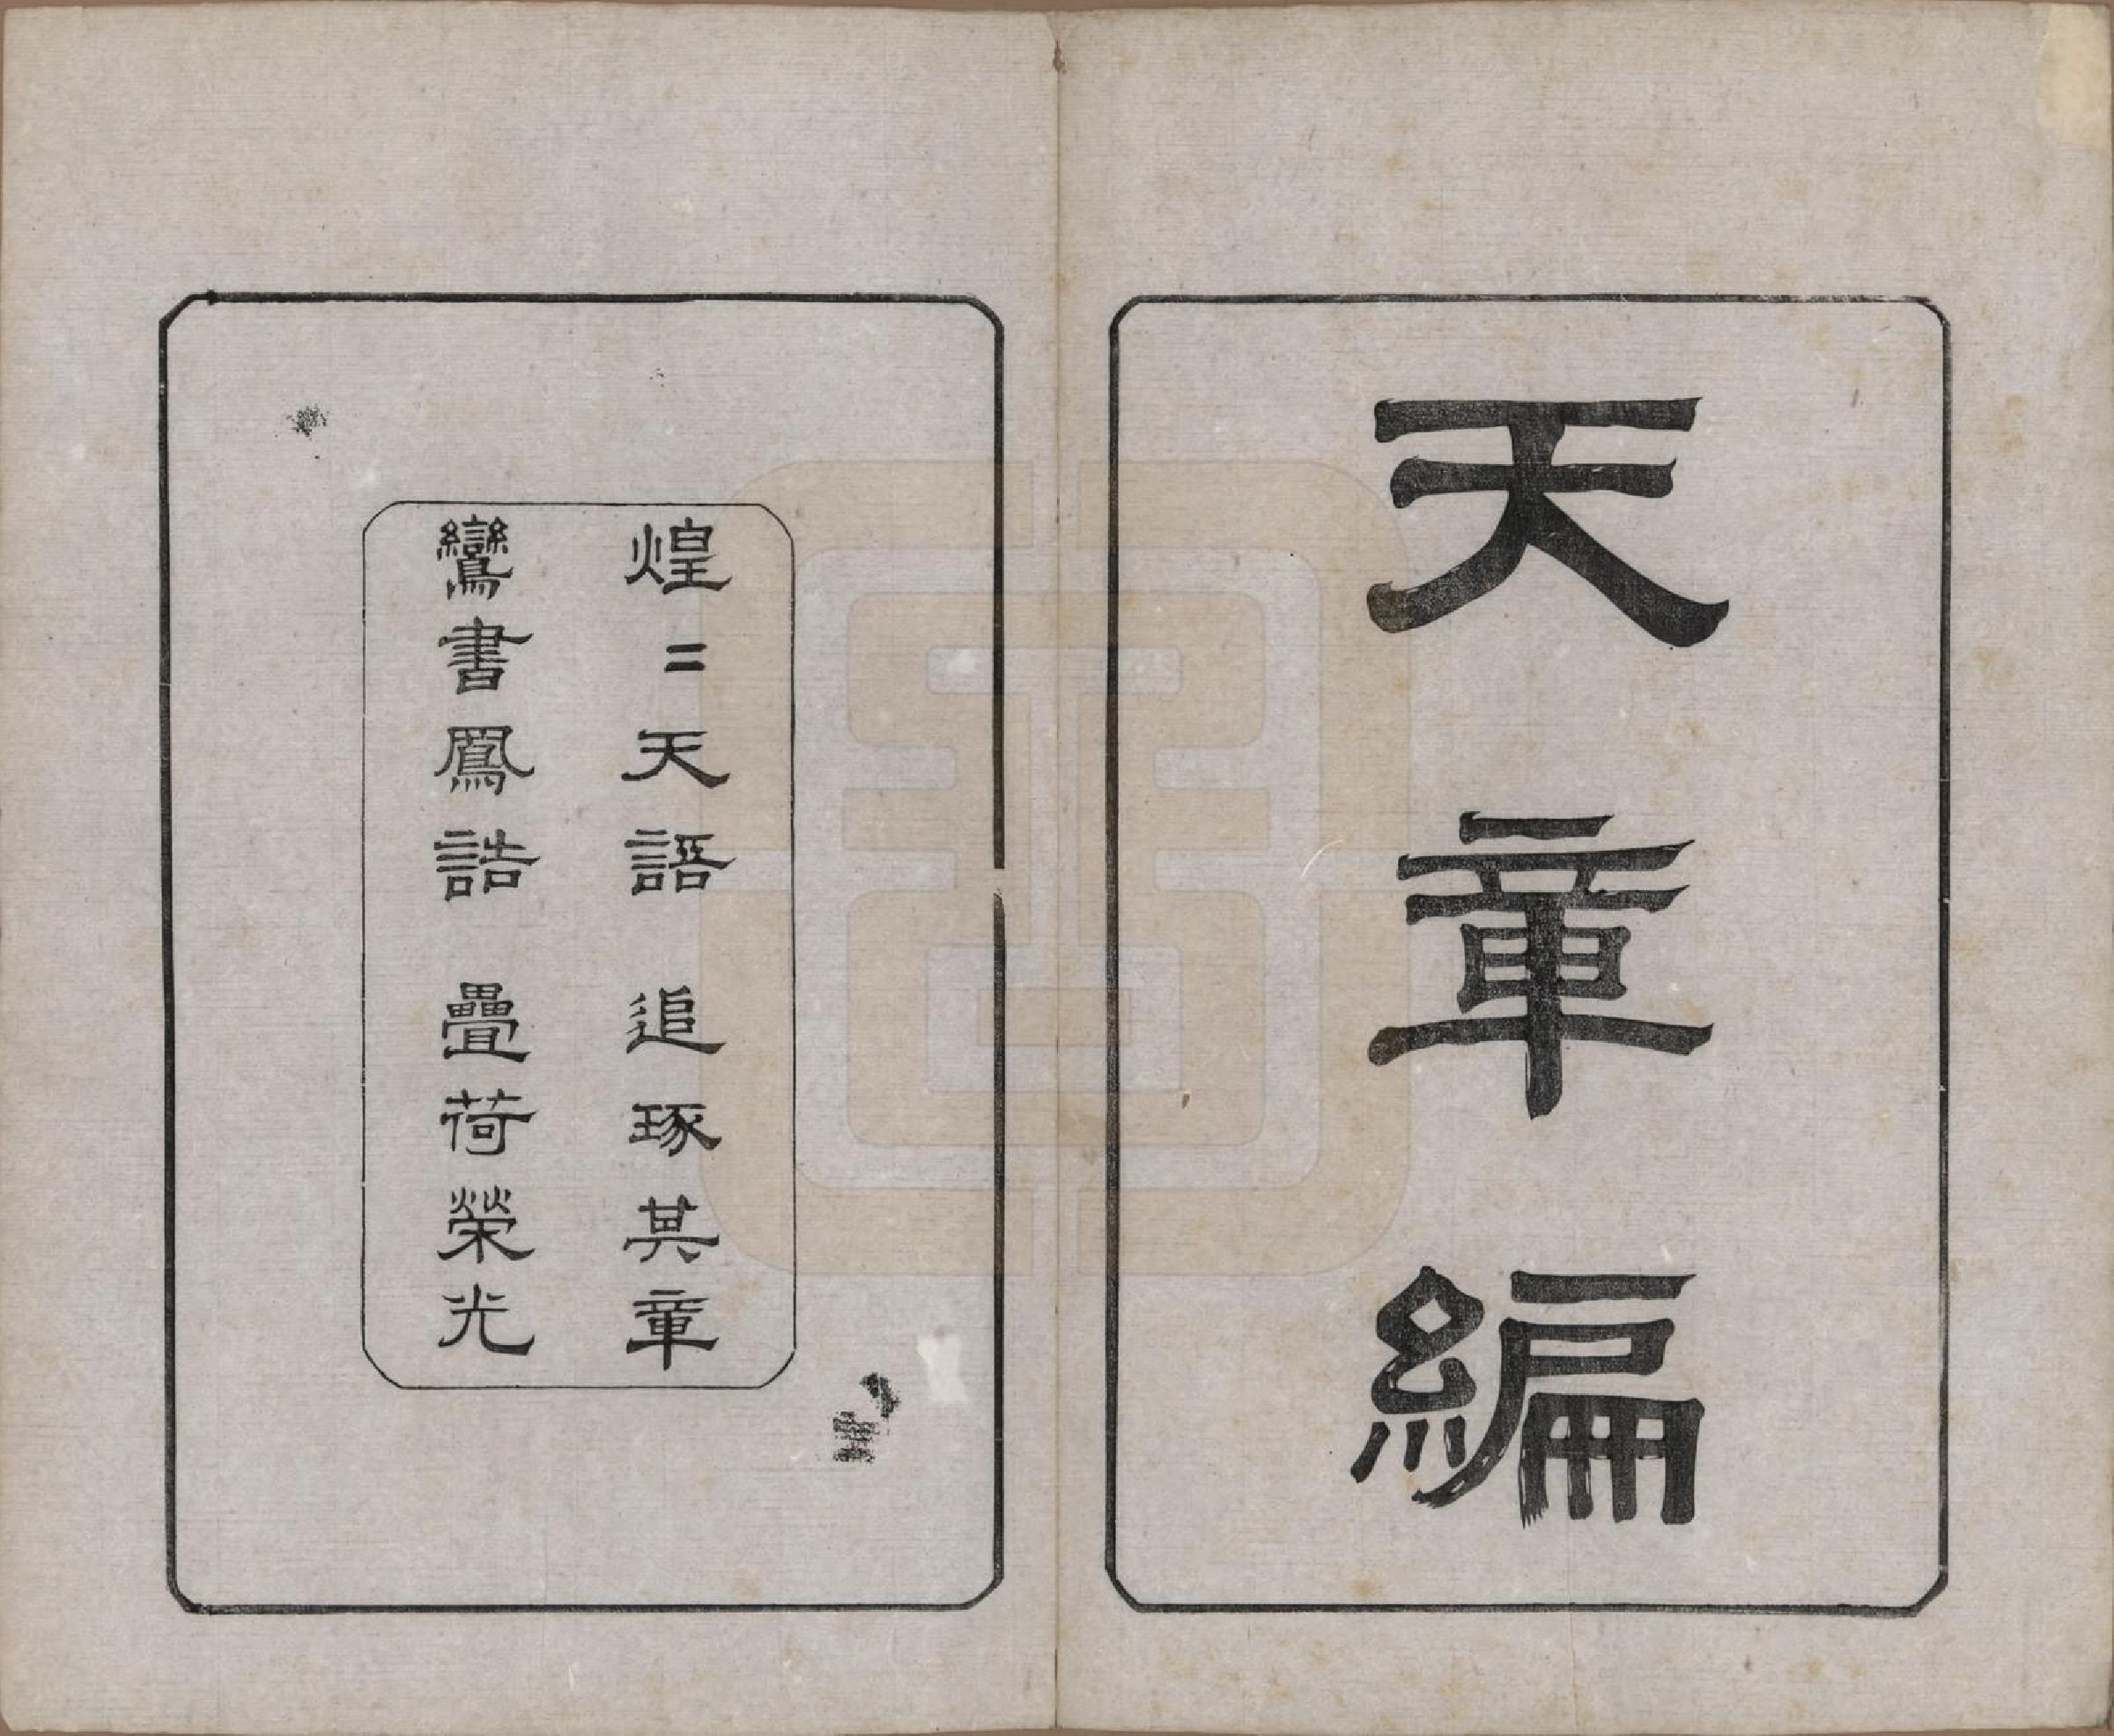 天章編
煌〻天語　追琢其章
鸞書鳳誥　疊荷榮光